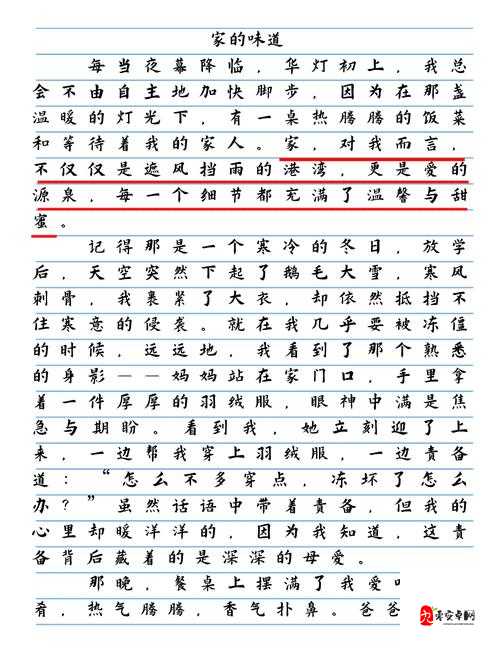 家的味道
每当夜幕降临，华灯初上，我总
会不由自主地加快脚步，因为在那盏
温暖的灯光下，有一桌热腾腾的饭菜
和等待着我的家人。家，对我而言，
不仅仅是遮风挡雨的港湾，更是爱的
源泉，每一个细节都充满了温馨与甜
蜜。
记得那是一个寒冷的冬日，放学
后，天空突然下起了鹅毛大雪，寒风
刺骨，我裹紧了大衣，却依然抵挡不
住寒意的侵袭。就在我几乎要被冻僵
的时候，远远地，我看到了那个熟悉
的身影——妈妈站在家门口，手里拿
着一件厚厚的羽绒服，眼神中满是焦
急与期盼。看到我，她立刻迎了上
来，一边帮我穿上羽绒服，一边责备
道：“怎么不多穿点，冻坏了怎么
办？”虽然话语中带着责备，但我的
心里却暖洋洋的，因为我知道，这责
备背后藏着的是深深的母爱。
那晚，餐桌上摆满了我爱
肴，热气腾腾，香气扑鼻。爸爸
零安卓网